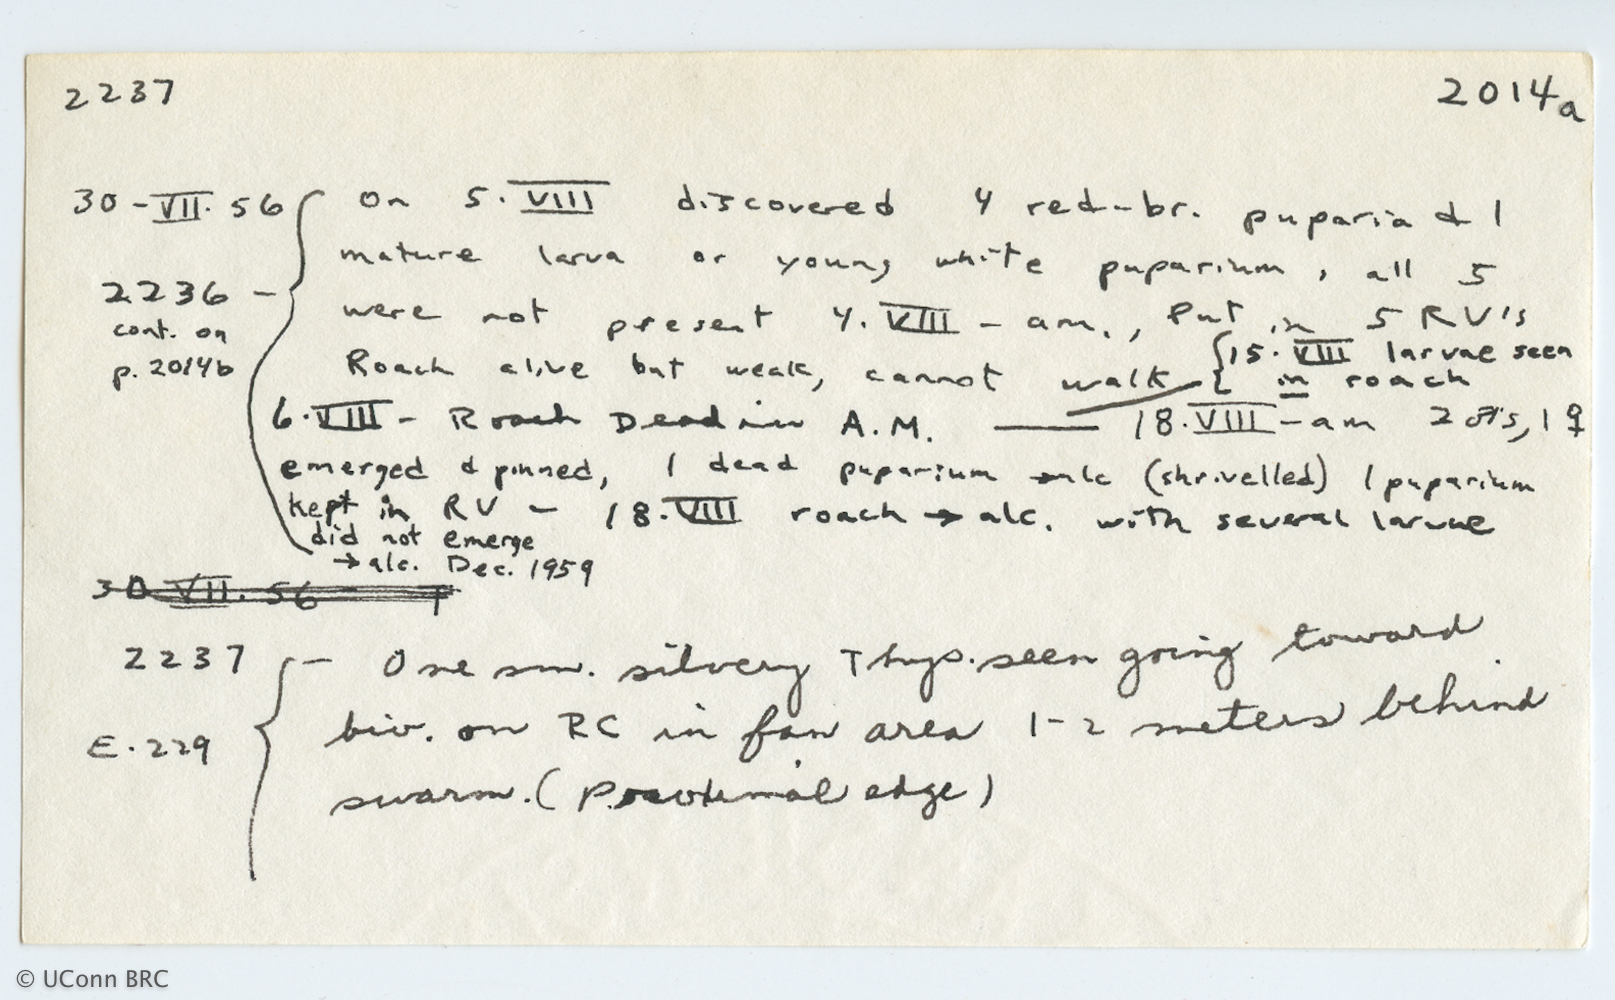 2237
2014a
30-VII.56 On 5.VIII discovered 4 red-br. puparia & 1
mature larva or young white puparium, all 5
2236 -
were not present 4.VIII - am., Put in 5 RV's
cont. on
p. 2014b
Roach alive but weak, cannot walk
{15.VIII larvae seen
in roach
6.VIII - Roach Dead in A.M. — 18.VIII - am 2 ♂'s, 1 ♀
emerged & pinned, 1 dead puparium → alc (shrivelled) 1 puparium
kept in RV - 18.VIII roach → alc. with several larvae
did not emerge
→ alc. Dec. 1959
30 VII. 56 -
2237 - One sm. silvery Thys. seen going toward
biv. on RC in fan area 1-2 meters behind
E.229
swarm. (Proximal edge)
© UConn BRC